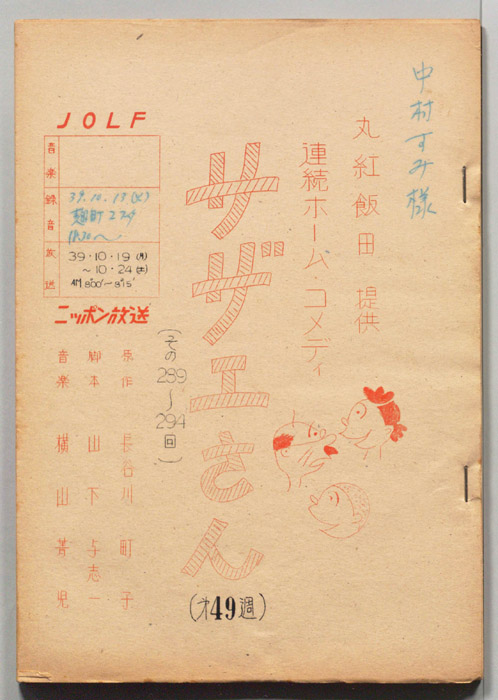 中村すみ様
丸紅飯田 提供
連続ホーム・コメディ
サザエさん
(その289〜294回)
(才49週)
JOLF
音楽
録音
39.10.13(火)
麹町スタ
放送
39・10・19(月)
〜10・24(土)
AM 8°00'〜8°15'
ニッポン放送
原作 長谷川町子
脚本 山下与志一
音楽 横山菁児